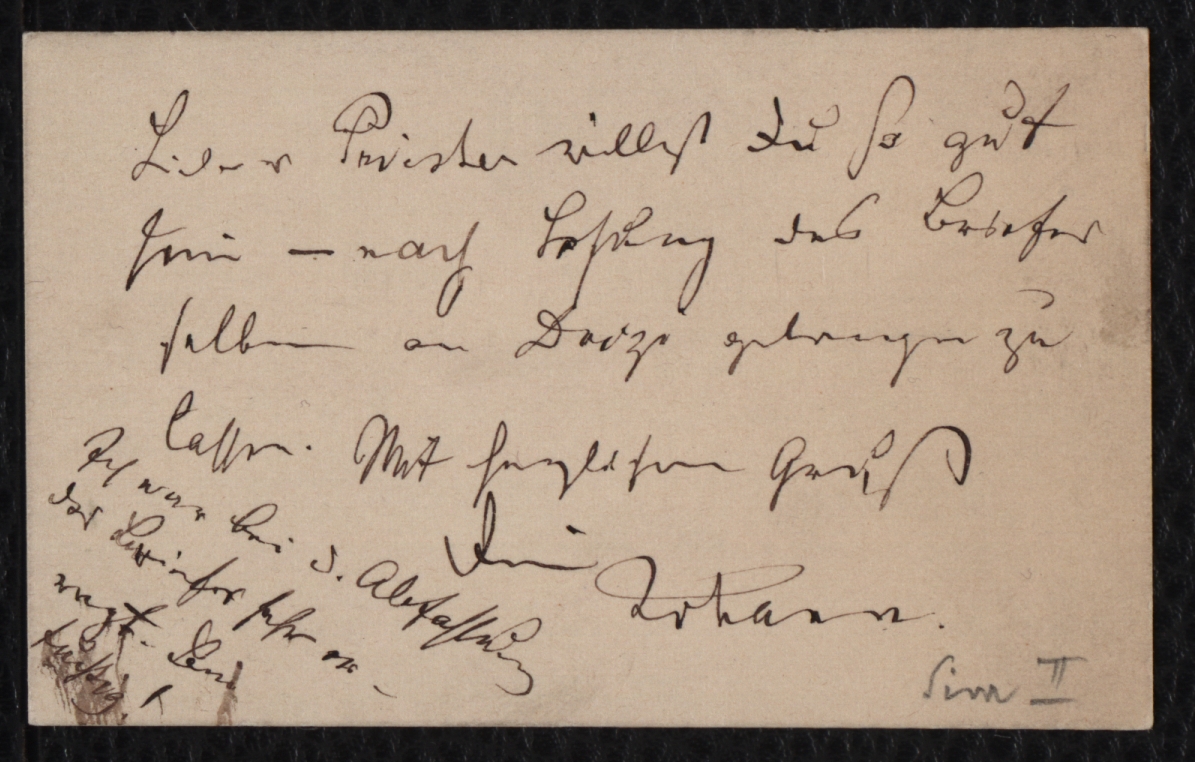 Lieber Priester willst Du so gut
sein – nach Lesung des Briefes
selben an Dorizi gelangen zu
lassen. Mit herzlichem Gruß
Dein
Johann.
Ich war bei d. Abfassung
des Briefes sehr er-
regt. Sei